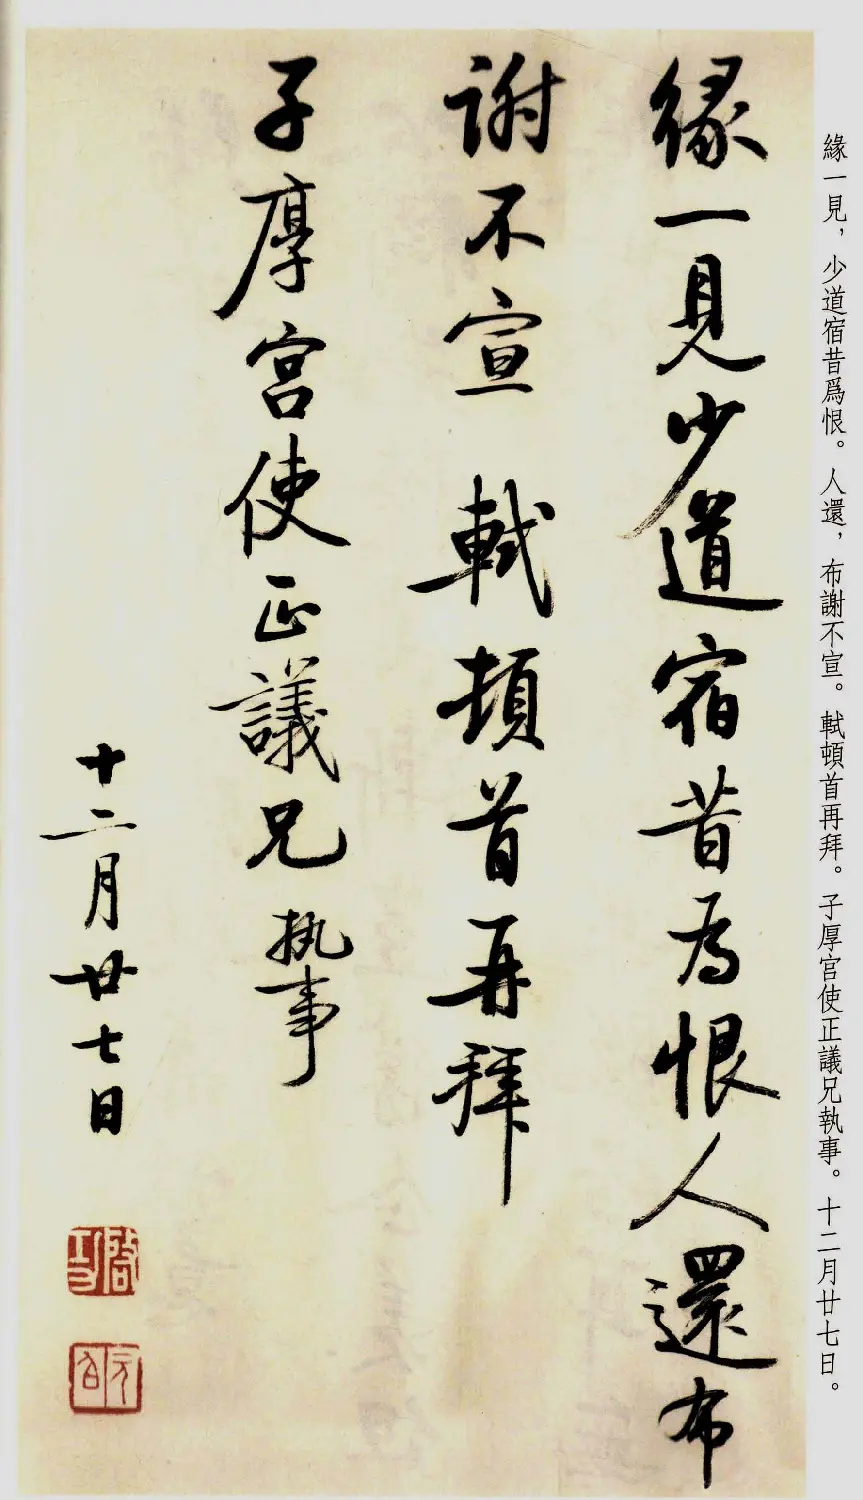 緣一見，少道宿昔爲恨。人還，布謝不宣。軾頓首再拜。子厚宮使正議兄執事。十二月廿七日。
緣一見少道宿昔为恨人還布
謝不宣 軾頓首再拜
子厚宮使正議兄執事
十二月廿七日
啟功
元白